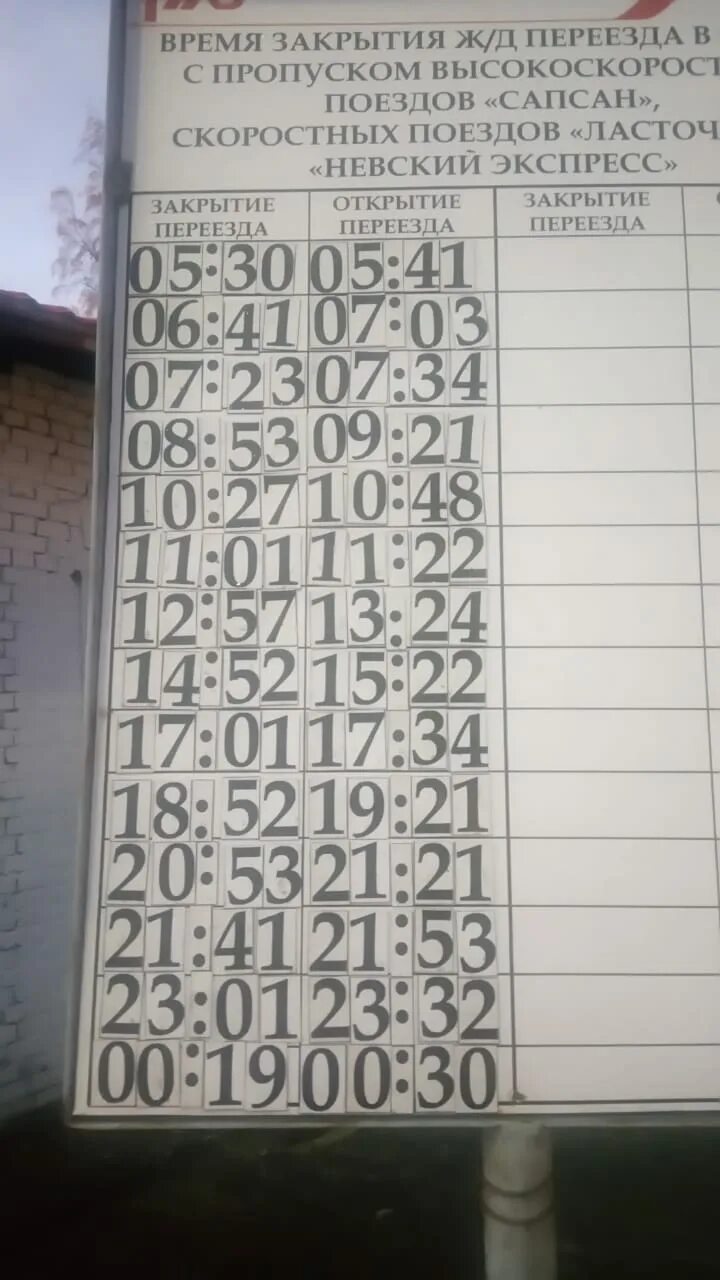 ВРЕМЯ ЗАКРЫТИЯ Ж/Д ПЕРЕЕЗДА В
С ПРОПУСКОМ
ПОЕЗДОВ «САПСАН»,
СКОРОСТНЫХ ПОЕЗДОВ
«НЕВСКИЙ ЭКСПРЕСС»
ЗАКРЫТИЕ ПЕРЕЕЗДА ОТКРЫТИЕ ПЕРЕЕЗДА ЗАКРЫТИЕ ПЕРЕЕЗДА
05:30 05:41
06:41 07:03
07:23 07:34
08:53 09:21
10:27 10:48
11:01 11:22
12:57 13:24
14:52 15:22
17:01 17:34
18:52 19:21
20:53 21:21
21:41 21:53
23:01 23:32
00:19 00:30